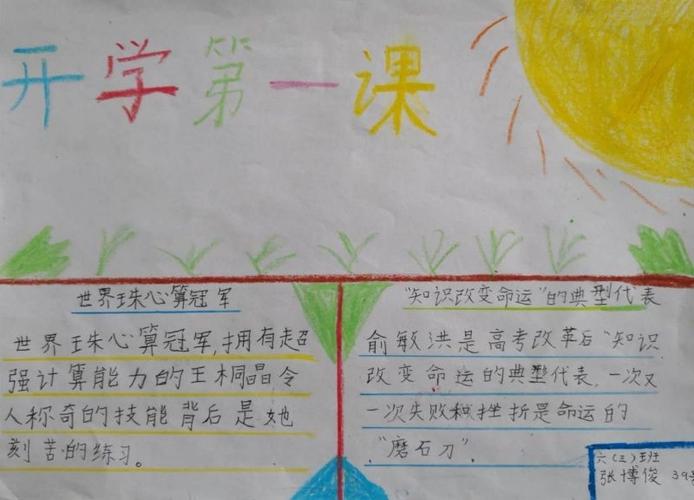 开学第一课
世界珠心算冠军
世界珠心算冠军,拥有超
强计算能力的王桐晶,令
人称奇的技能背后是她
刻苦的练习。
"知识改变命运"的典型代表
俞敏洪是高考改革后"知识
改变命运的典型代表,一次又
一次失败和挫折是命运的
"磨石刀"。
六(三)班
张博俊 39号